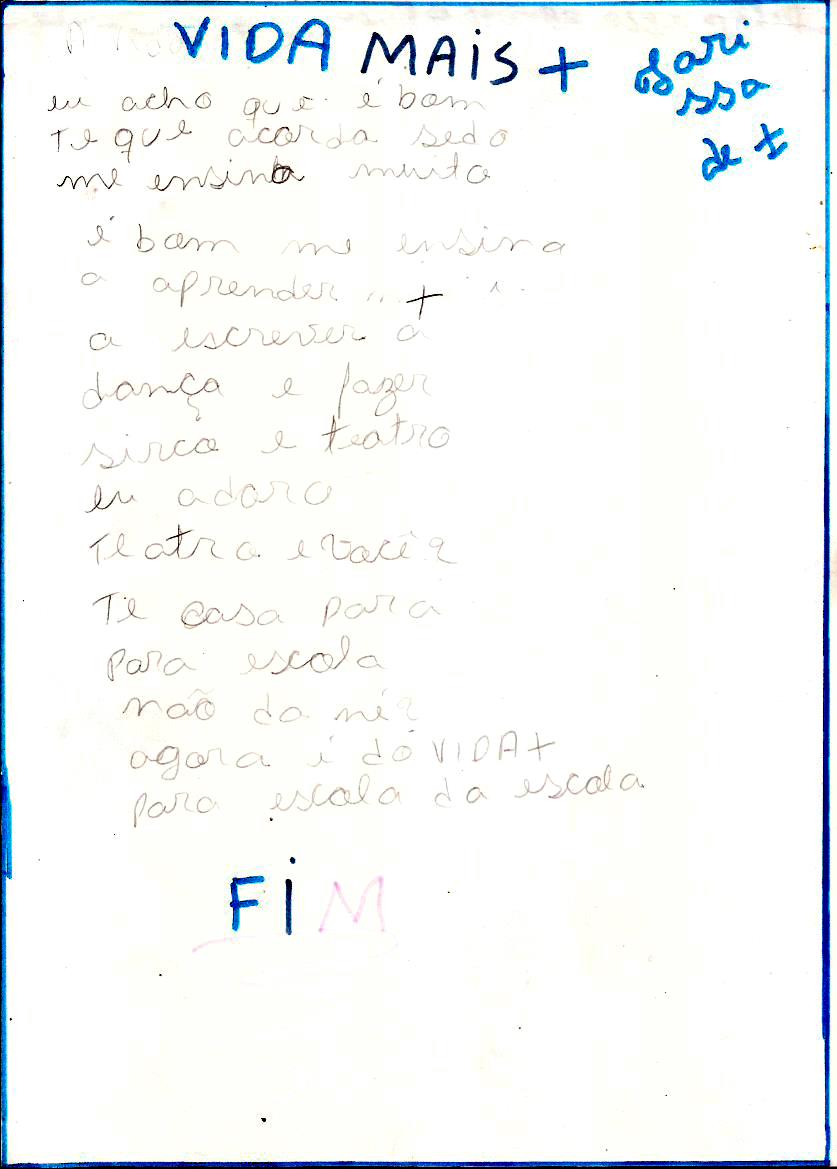 VIDA MAIS +
Lari
ssa
de
eu acho que é bom
Te que acorda sedo
me ensina muito
é bom me ensina
a aprender +
a escrever a
dança e fazer
sirco e teatro
eu adoro
Teatro e você?
Te casa para
para escola
não da né?
agora i do VIDA+
para escola da escola.
FiM